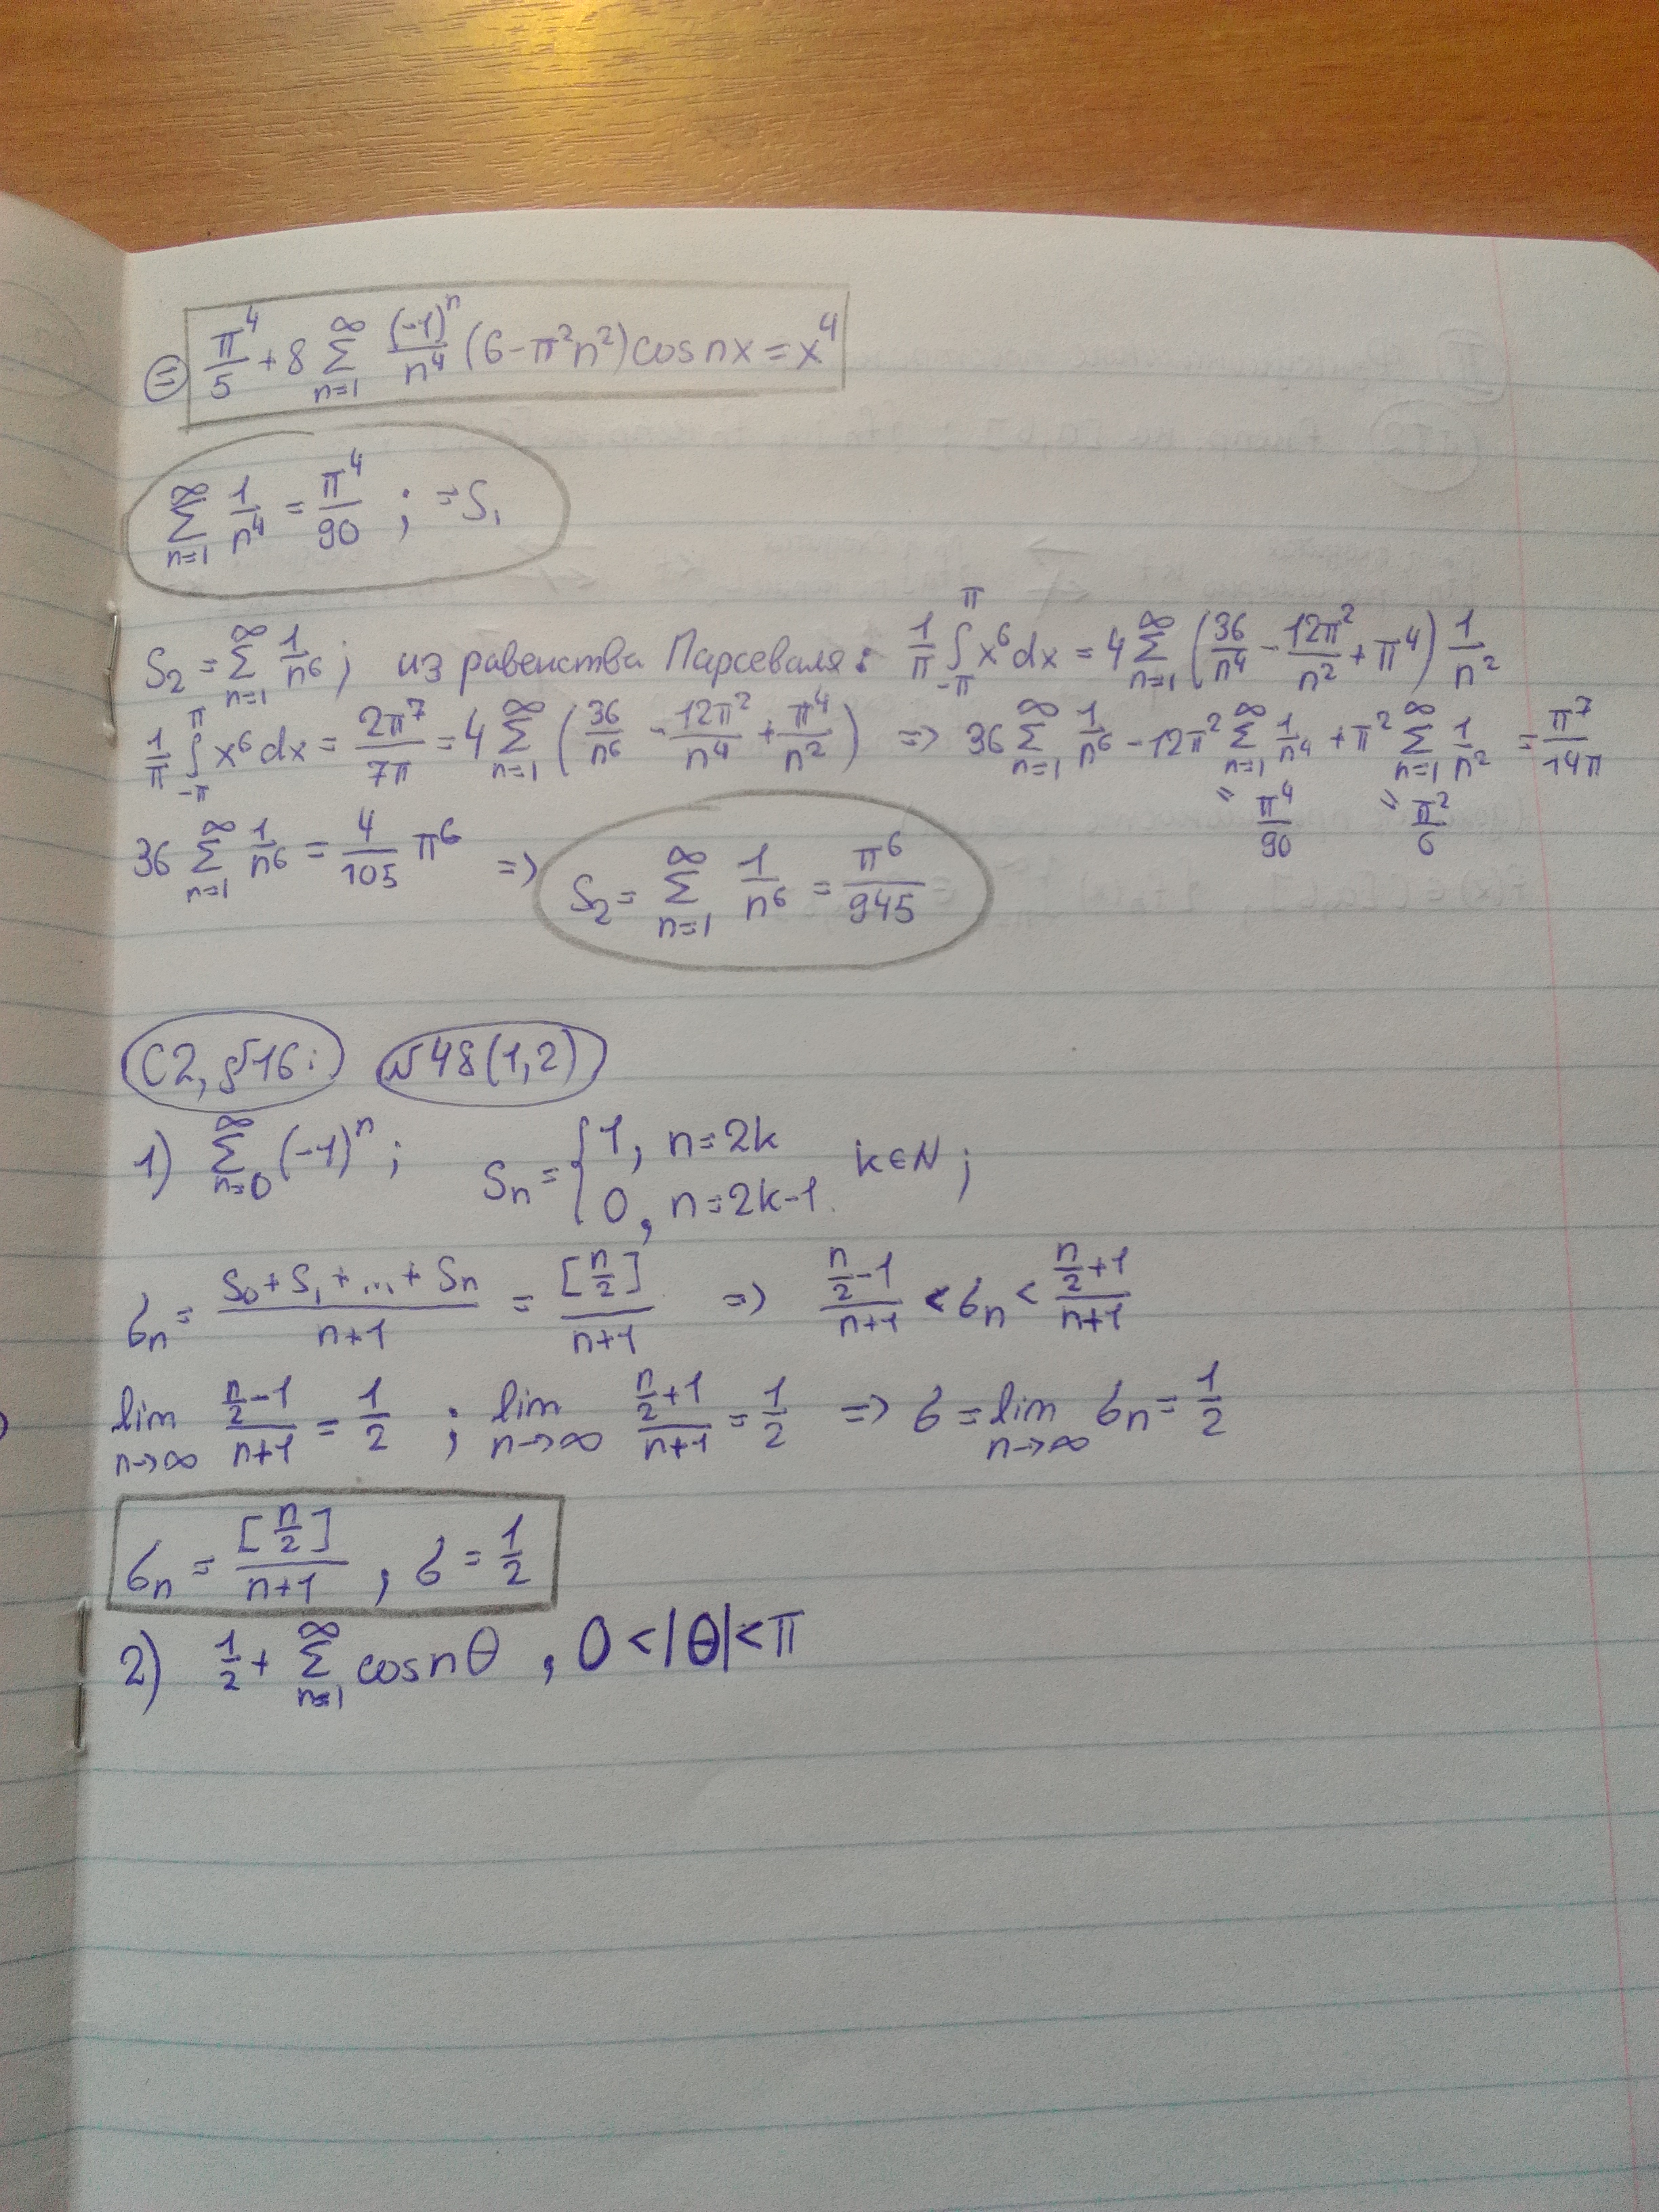 ⊜ π⁴/5 + 8 ∑_{n=1}^{∞} (-1)ⁿ/n⁴ (6-π²n²) cos nx = x⁴
∑_{n=1}^{∞} 1/n⁴ = π⁴/90 ; = S₁
S₂ = ∑_{n=1}^{∞} 1/n⁶; из равенства Парсеваля: 1/π ∫_{-π}^{π} x⁶dx = 4 ∑_{n=1}^{∞} (36/n⁴ - 12π²/n² + π⁴) 1/n²
1/π ∫_{-π}^{π} x⁶dx = 2π⁷/7π = 4 ∑_{n=1}^{∞} (36/n⁶ - 12π²/n⁴ + π⁴/n²) => 36 ∑_{n=1}^{∞} 1/n⁶ - 12π² ∑_{n=1}^{∞} 1/n⁴ + π² ∑_{n=1}^{∞} 1/n² = π⁷/14π
= π⁴/90 = π²/6
36 ∑_{n=1}^{∞} 1/n⁶ = 4/105 π⁶ => S₂ = ∑_{n=1}^{∞} 1/n⁶ = π⁶/945
С2, §16: №48(1,2)
1) ∑_{n=0}^{∞} (-1)ⁿ; Sₙ = { 1, n=2k
0, n=2k-1. k∈N;
бₙ = (S₀+S₁+...+Sₙ)/(n+1) = [n/2]/(n+1) => (n/2-1)/(n+1) < бₙ < (n/2+1)/(n+1)
lim_{n→∞} (n/2-1)/(n+1) = 1/2 ; lim_{n→∞} (n/2+1)/(n+1) = 1/2 => б = lim_{n→∞} бₙ = 1/2
бₙ = [n/2]/(n+1), б = 1/2
2) 1/2 + ∑_{n=1}^{∞} cos nθ, 0<|θ|<π